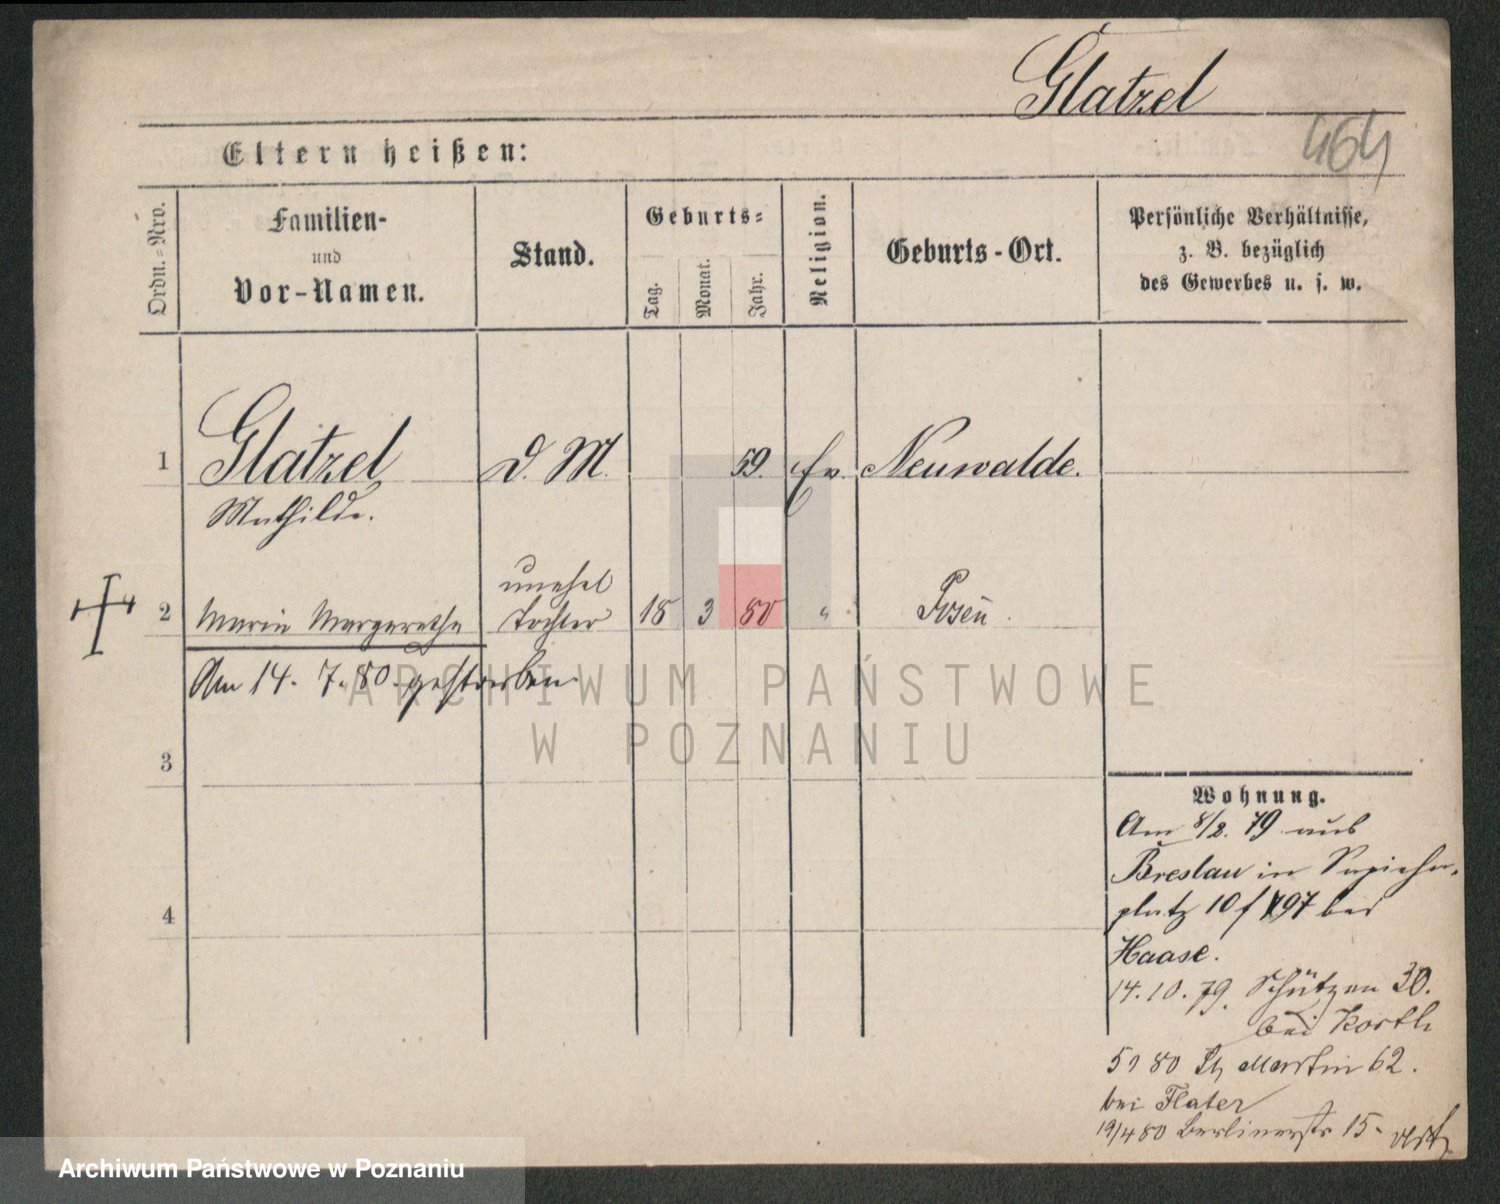 Glatzel
464
Eltern heißen:
Ordn.=Nro.
Familien-
und
Vor-Namen.
Stand.
Geburts=
Tag.
Monat.
Jahr.
Religion.
Geburts-Ort.
Persönliche Verhältnisse,
z. B. bezüglich
des Gewerbes u. s. w.
1
Glatzel
Mathilde.
D. M.
59.
Ev.
Neuwalde.
2
Maria Margarethe
unehel
Tochter
18
3
80
"
Posen.
Am 14. 7. 80. gestorben
3
4
Wohnung.
Am 8/2. 79 aus
Breslau in Sapieha-
platz 10 f 797 bei
Haase.
14.10.79. Schützen 30.
bei Korth
5 1 80 St Martin 62.
bei Flater
19/4 80 Berlinerstr 15-
ARCHIWUM PAŃSTWOWE
W POZNANIU
Archiwum Państwowe w Poznaniu